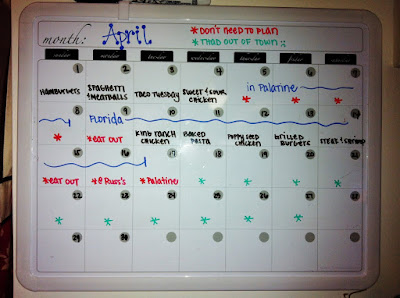 month: April
*DON'T NEED TO PLAN
*THAD OUT OF TOWN :(
sunday monday tuesday wednesday thursday friday saturday
1 2 3 4 5 6 7
HAMBURGERS
SPAGHETTI
& MEATBALLS
TACO TUESDAY
SWEET & SOUR
CHICKEN
in PALATINE
* * *
8 9 10 11 12 13 14
FLORIDA
*
*EAT OUT
KING RANCH
CHICKEN
BAKED
PASTA
POPPY SEED
CHICKEN
GRILLED
BURGERS
STEAK & SHRIMP
15 16 17 18 19 20 21
*EAT OUT
*@ RUSS'S
*PALATINE
* * * *
22 23 24 25 26 27 28
* * * * * *
29 30